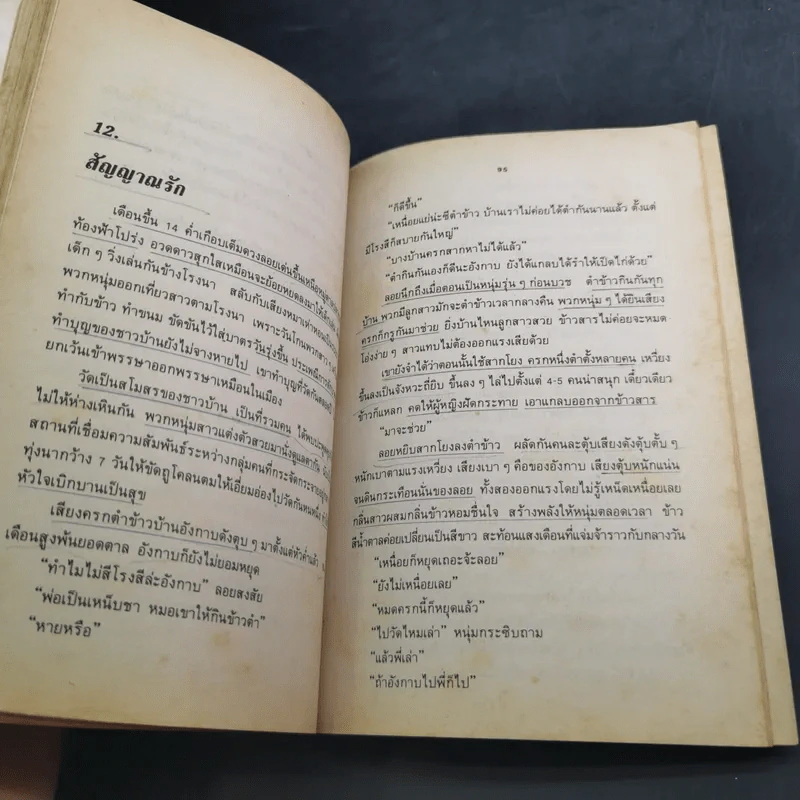 12.
สัญญาณรัก
เดือนขึ้น 14 ค่ำเกือบเต็มดวงลอยเด่นขึ้นเหนือหมู่
ท้องฟ้าโปร่ง อวดดาวสุกใสเหมือนจะย้อยหยดลงมาให้เด็ก
เด็ก ๆ วิ่งเล่นกันข้างโรงนา สลับกับเสียงหมาเห่าหอน
พวกหนุ่มออกเที่ยวสาวตามโรงนา เพราะวันโกนพวกสาว
ทำกับข้าว ทำขนม ขัดขันไว้ใส่บาตรวันรุ่งขึ้น ประเพณี
ทำบุญของชาวบ้านยังไม่จางหายไป เขาทำบุญที่วัดกันตลอด
ยกเว้นเข้าพรรษาออกพรรษาเหมือนในเมือง
วัดเป็นสโมสรของชาวบ้าน เป็นที่รวมคน ได้พบปะ
ไม่ให้ห่างเหินกัน พวกหนุ่มสาวแต่งตัวสวยมานั่งดูแลตากัน
สถานที่เชื่อมความสัมพันธ์ระหว่างกลุ่มคนที่กระจัดกระจายอยู่
ทุ่งนากว้าง 7 วันให้ขัดถูโคลนตมให้เอี่ยมอ่องไปวัดกันหนหนึ่ง
หัวใจเบิกบานเป็นสุข
เสียงครกตำข้าวบ้านอังกาบดังตุบ ๆ มาตั้งแต่หัวค่ำแล้ว
เดือนสูงพ้นยอดตาล อังกาบก็ยังไม่ยอมหยุด
“ทำไมไม่สีโรงสีล่ะอังกาบ” ลอยสงสัย
“พ่อเป็นเหน็บชา หมอเขาให้กินข้าวตำ”
“หายหรือ”
๑๕
“ก็ดีขึ้น”
“เหนื่อยแย่น่ะซีตำข้าว บ้านเราไม่ค่อยได้ตำกันนานแล้ว ตั้งแต่
มีโรงสีก็สบายกันใหญ่”
“บางบ้านครกสากหาไม่ได้แล้ว”
“ตำกินกันเองก็ดีนะอังกาบ ยังได้แกลบได้รำให้เป็ดไก่ด้วย”
ลอยนึกถึงเมื่อตอนเป็นหนุ่มรุ่น ๆ ก่อนบวช ตำข้าวกินกันทุก
บ้าน พวกมีลูกสาวมักจะตำข้าวเวลากลางคืน พวกหนุ่ม ๆ ได้ยินเสียง
ครกก็กรูกันมาช่วย ยิ่งบ้านไหนลูกสาวสวย ข้าวสารไม่ค่อยจะหมด
โอ่งง่าย ๆ สาวแทบไม่ต้องออกแรงเสียด้วย
เขายังจำได้ว่าตอนนั้นใช้สากโยง ครกหนึ่งตำตั้งหลายคน เหวี่ยง
ขึ้นลงเป็นจังหวะถี่ยิบ ขึ้นลง ๆ ไล่ไปตั้ง 4-5 คนน่าสนุก เดี๋ยวเดียว
ข้าวก็แหลก คดให้ผู้หญิงฝัดกระทาย เอาแกลบออกจากข้าวสาร
“มาจะช่วย”
ลอยหยิบสากโยงลงตำข้าว ผลัดกันคนละตุ้บเสียงดังตุ้บตั้บ ๆ
หนักเบาตามแรงเหวี่ยง เสียงเบา ๆ คือของอังกาบ เสียงตุ้บหนักแน่น
จนดินกระเทือนนั่นของลอย ทั้งสองออกแรงโดยไม่รู้เหน็ดเหนื่อยเลย
กลิ่นสาวผสมกลิ่นข้าวหอมชื่นใจ สร้างพลังให้หนุ่มตลอดเวลา ข้าว
สีน้ำตาลค่อยเปลี่ยนเป็นสีขาว สะท้อนแสงเดือนที่แจ่มจ้าราวกับกลางวัน
“เหนื่อยก็หยุดเถอะจ้ะลอย”
“ยังไม่เหนื่อยเลย”
“หมดครกนี้ก็หยุดแล้ว”
“ไปวัดไหมเล่า” หนุ่มกระซิบถาม
“แล้วพี่เล่า”
“ถ้าอังกาบไปพี่ก็ไป”